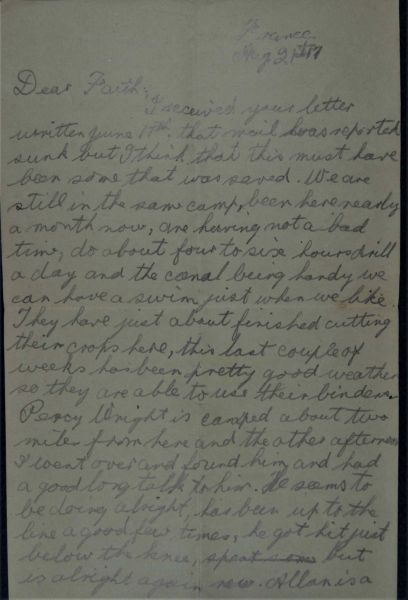 France
Aug 21st 17
Dear Faith;
I received your letter
written June 17th. that mail was reported
sunk but I think that this must have
been some that was saved. We are
still in the same camp, been here nearly
a month now, are having not a bad
time, do about four to six hours drill
a day and the canal being handy we
can have a swim just when we like.
They have just about finished cutting
their crops here, this last couple of
weeks has been pretty good weather
so they are able to use their binders.
Percy Wright is camped about two
miles from here and the other afternoon
I went over and found him and had
a good long talk to him. He seems to
be doing alright, has been up to the
line a good few times, he got hit just
below the knee, but
is alright again now. Allan is a